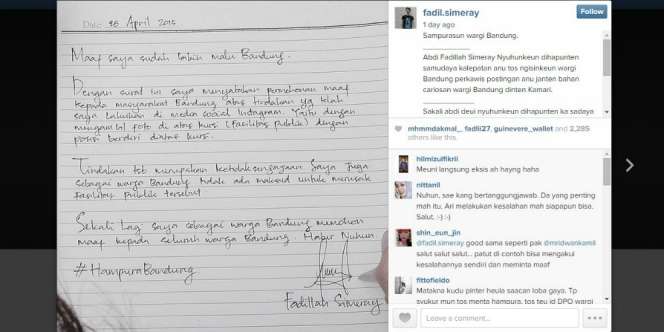 Date: 25 April 2015
Maaf saya sudah bikin malu Bandung.
Dengan surat ini saya menyatakan permohonan maaf
kepada masyarakat Bandung atas tindakan yg telah
saya lakukan di media sosial Instagram. Yaitu dengan
mengambil foto di atas kursi (fasilitas publik) dengan
posisi berdiri diatas kursi.
Tindakan tsb merupakan ketidaksengajaan saya juga
sebagai warga Bandung tidak ada maksud untuk merusak
fasilitas publik tersebut
Sekali lag saya sebagai warga Bandung memohon
maaf kepada seluruh warga Bandung. Hatur Nuhun
#HampuraBandung
Fadillah Simeray
fadil.simeray
1 day ago
Follow
Sampurasun wargi Bandung.
Abdi Fadillah Simeray Nyuhunkeun dihapunten
samudaya kalepatan anu tos ngisinkeun wargi
Bandung perkawis postingan anu janten bahan
cariosan wargi Bandung dinten Kamari.
Sakali abdi deui nyuhunkeun dihapunten ka sadaya
mhmmdakmal_, fadili27, guinevere_wallet and 2,285
others like this.
hilmizulfikrii
Meuni langsung eksis ah hayng haha
nittanil
Nuhun, sae kang bertanggungjawab. Da yang penting
mah itu. Ari melakukan kesalahan mah siapapun bisa.
Salut. :-) :-)
shin_eun_jin
@fadil.simeray good sama seperti pak @mridwankamil
salut salut salut... patut di contoh bisa mengakui
kesalahannya sendiri dan meminta maaf
fittofieldo
Matakna kudu pinter heula saacan loba gaya. Tp
syukur mun tos menta hampura. tos teu id DPO warqi
Leave a comment...